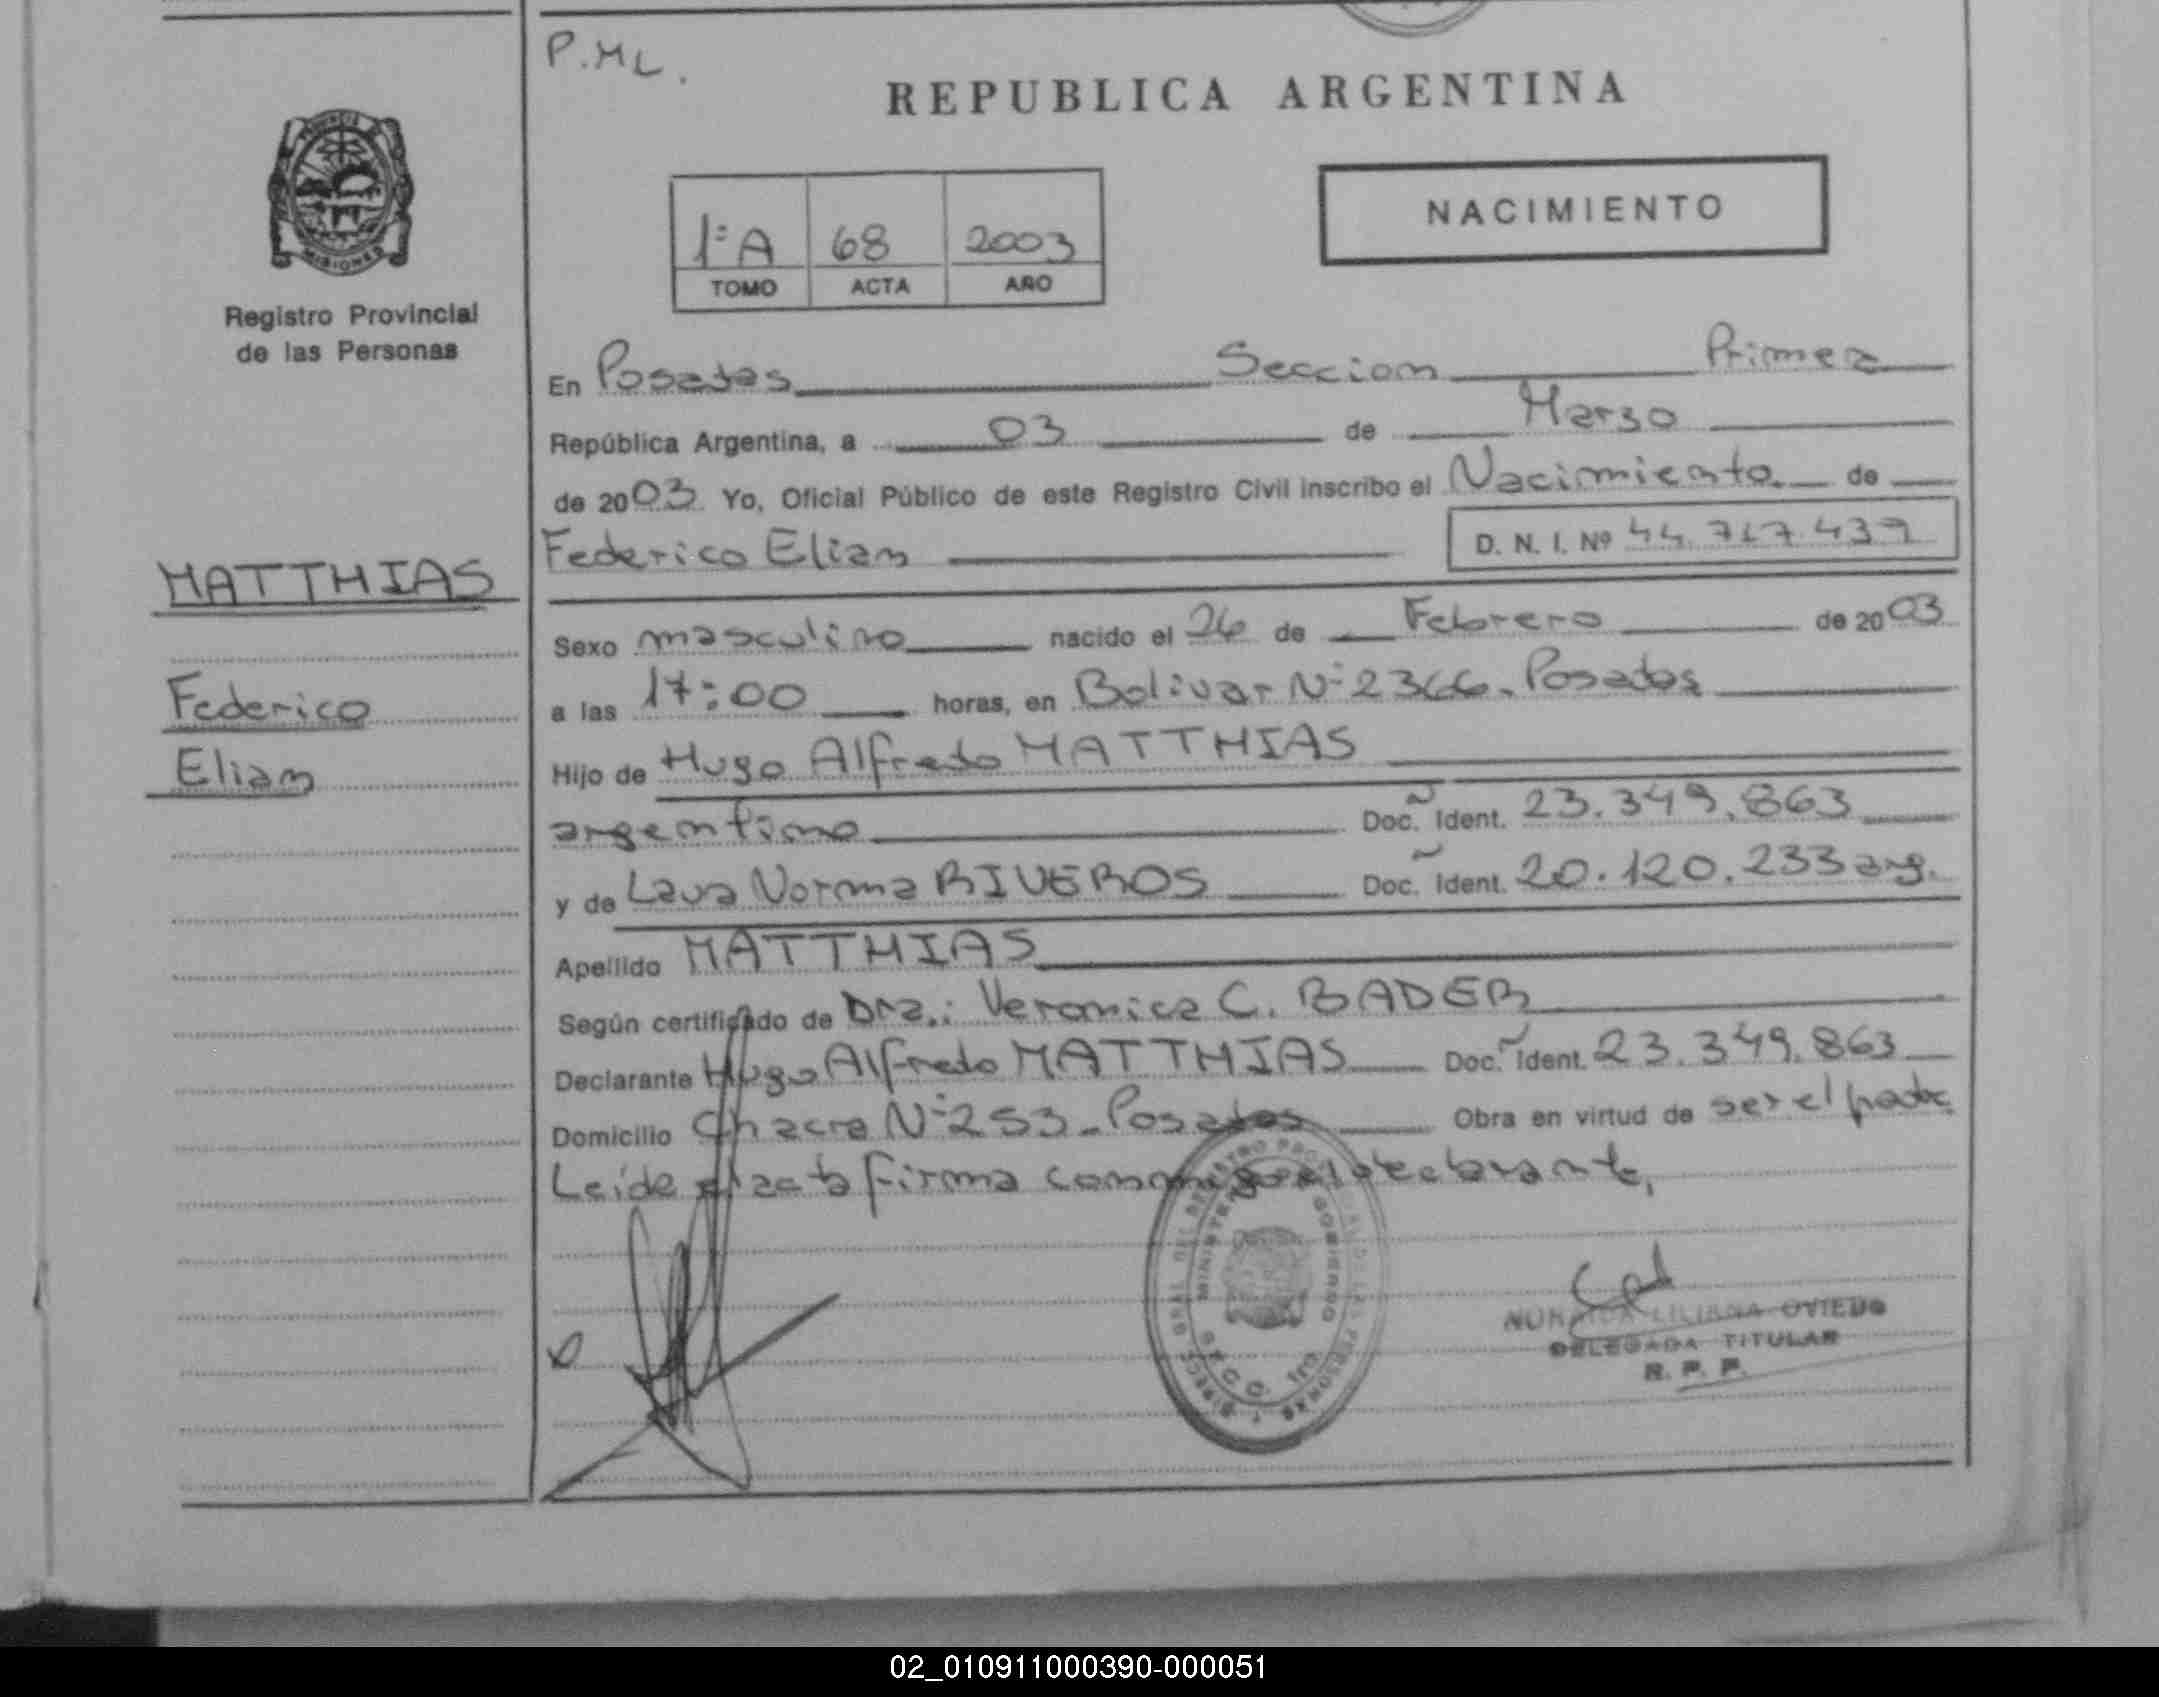 P.ML.
REPUBLICA ARGENTINA
PROVINCIA D
MISIONES
Registro Provincial
de las Personas
1ª A 68 2003
TOMO ACTA AÑO
NACIMIENTO
En Posadas Seccion Primera
República Argentina, a 03 de Marzo
de 2003 Yo, Oficial Público de este Registro Civil inscribo el Nacimiento. de
Federico Elian D. N. I. Nº 44.717.437
MATTHIAS
Federico
Elian
Sexo masculino nacido el 26 de Febrero de 2003
a las 17:00 horas, en Bolivar Nº 2366. Posadas
Hijo de Hugo Alfredo MATTHIAS
argentino Doc. Ident. 23.349.863
y de Laura Norma RIVEROS Doc. Ident. 20.120.233 arg.
Apellido MATTHIAS
Según certificado de Dra.: Veronica C. BADER
Declarante Hugo Alfredo MATTHIAS Doc. Ident. 23.349.863
Domicilio Chacra Nº 253 - Posadas Obra en virtud de ser el padre
Leída el acta firma conmigo el declarante,
MINISTER GOBIERNO
LILIANA OVIEDO
DELEGADA TITULAR
R. P. P.
02_010911000390-000051